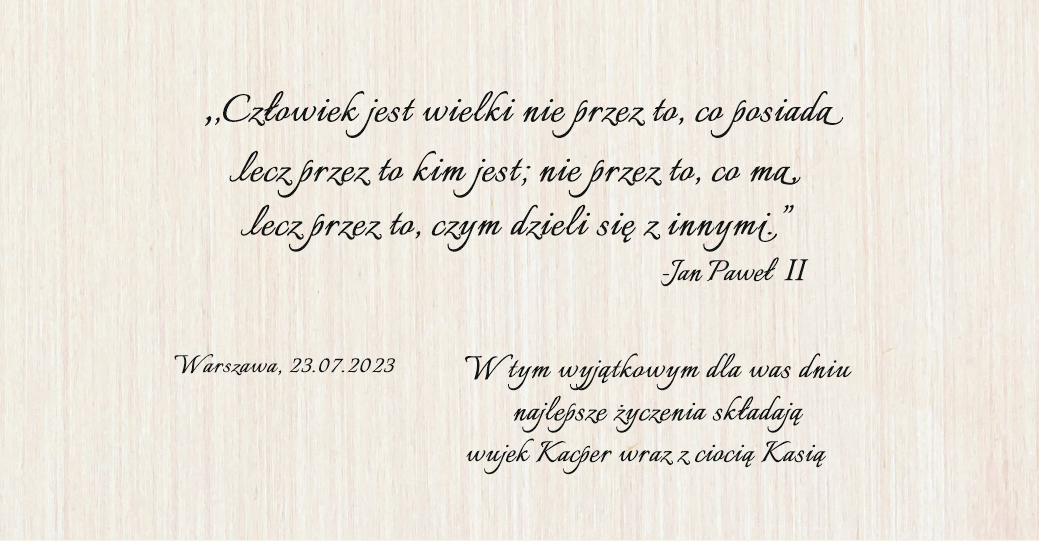 ,,Człowiek jest wielki nie przez to, co posiada
lecz przez to kim jest; nie przez to, co ma,
lecz przez to, czym dzieli się z innymi.”
-Jan Paweł II
Warszawa, 23.07.2023
W tym wyjątkowym dla was dniu
najlepsze życzenia składają
wujek Kacper wraz z ciocią Kasią